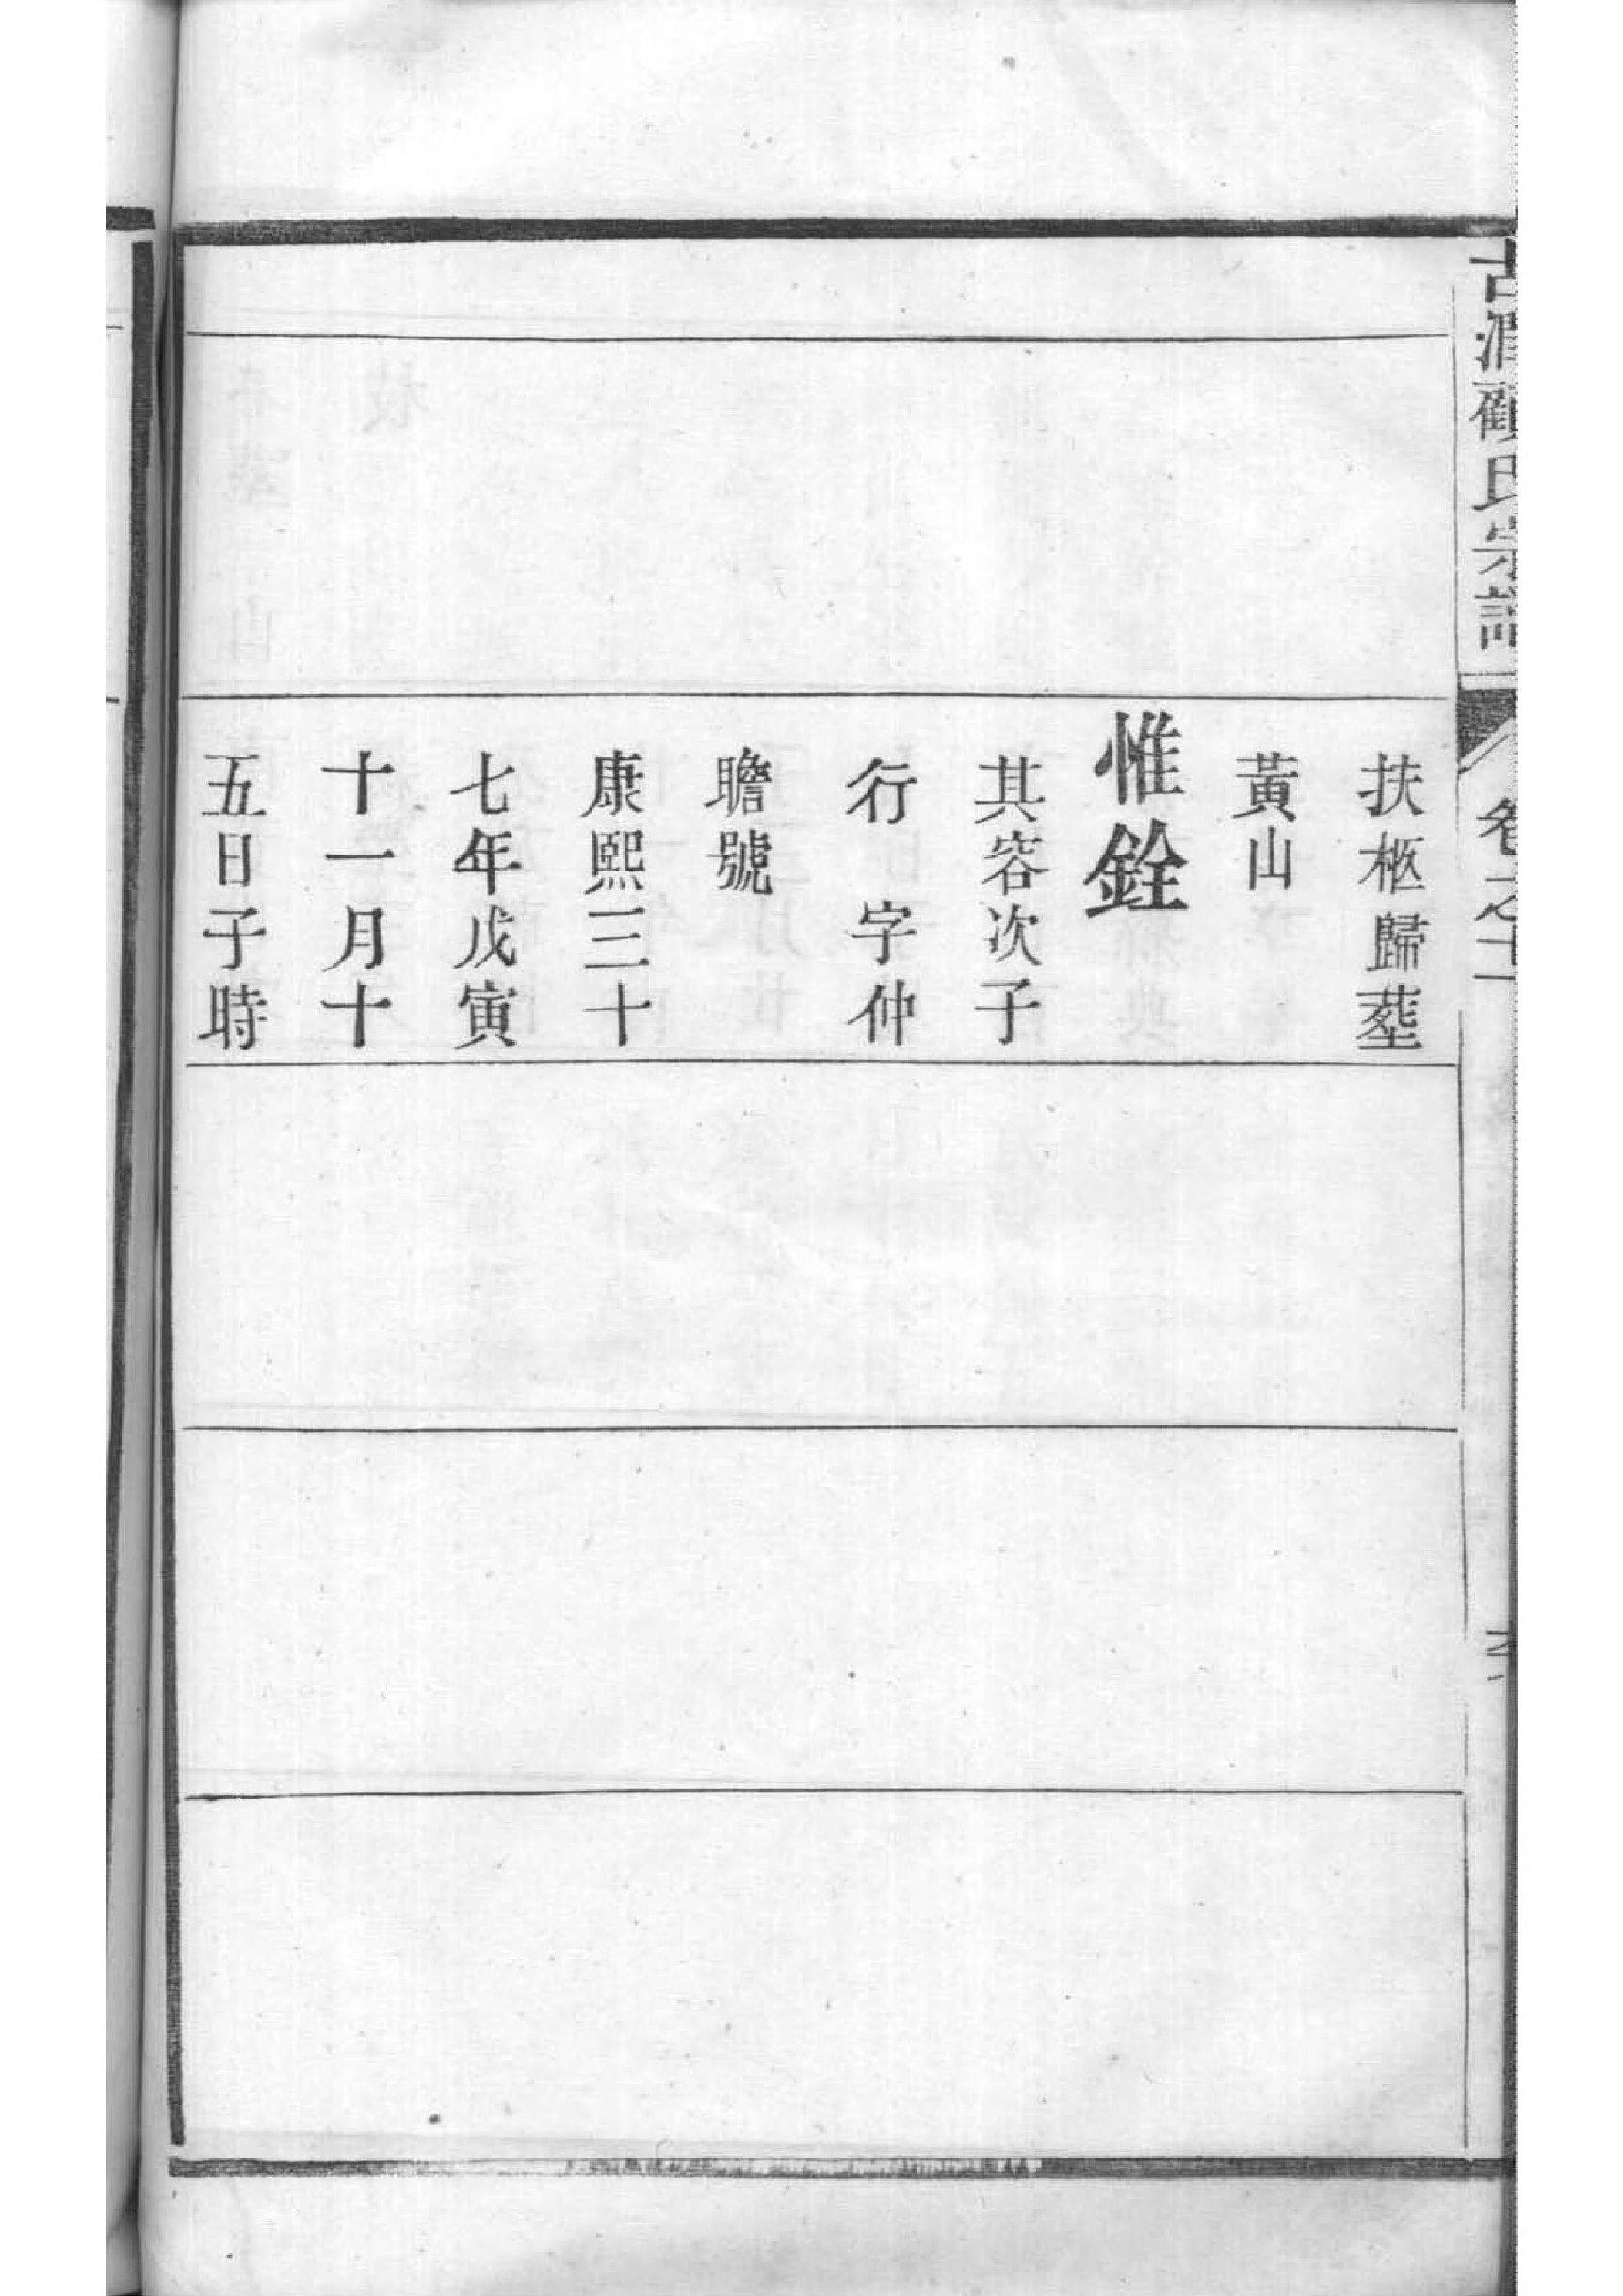 古潤顧氏宗譜
卷之十一
扶柩歸塟
黃山
惟銓
其容次子
行　字仲
瞻號
康熙三十
七年戊寅
十一月十
五日子時